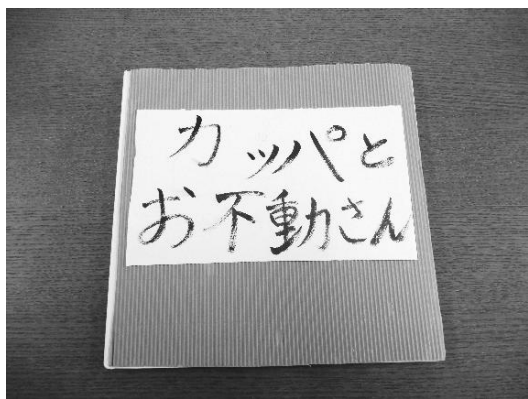 カッパと
お不動さん